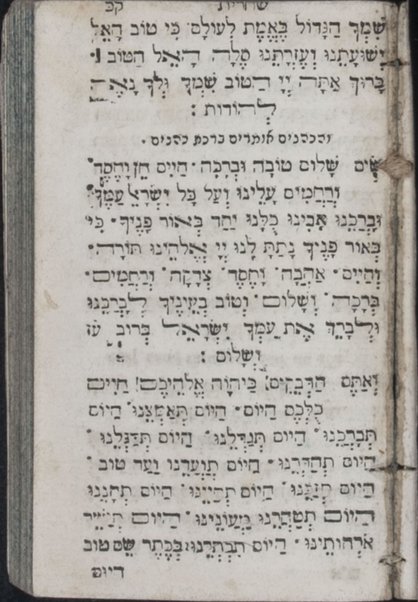 שחרית קכ
שִׁמְךָ הַגָּדוֹל בֶּאֱמֶת לְעוֹלָם כִּי טוֹב הָאֵל
יְשׁוּעָתֵנוּ וְעֶזְרָתֵנוּ סֶלָה הָאֵל הַטּוֹב׃
בָּרוּךְ אַתָּה יְיָ הַטּוֹב שִׁמְךָ וּלְךָ נָאֶה
לְהוֹדוֹת :
והכהנים אומרים ברכת כהנים ·
שִׂים שָׁלוֹם טוֹבָה וּבְרָכָה· חַיִּים חֵן וָחֶסֶד
וְרַחֲמִים עָלֵינוּ וְעַל כָּל יִשְׂרָאֵל עַמֶּךָ·
וּבָרְכֵנוּ אָבִינוּ כֻּלָּנוּ יַחַד בְּאוֹר פָּנֶיךָ· כִּי
בְאוֹר פָּנֶיךָ נָתַתָּ לָנוּ יְיָ אֱלֹהֵינוּ תּוֹרָה·
וְחַיִּים· אַהֲבָה· וָחֶסֶד· צְדָקָה· וְרַחֲמִים·
בְּרָכָה· וְשָׁלוֹם· וְטוֹב בְּעֵינֶיךָ לְבָרְכֵנוּ
וּלְבָרֵךְ אֶת עַמְּךָ יִשְׂרָאֵל בְּרוֹב עֹז
וְשָׁלוֹם :
וְאַתֶּם הַדְּבֵקִים בַּיהוָה אֱלֹהֵיכֶם חַיִּים
כֻּלְּכֶם הַיּוֹם· הַיּוֹם תְּאַמְּצֵנוּ· הַיּוֹם
תְּבָרְכֵנוּ· הַיּוֹם תְּגַדְּלֵנוּ· הַיּוֹם תְּדַגְּלֵנוּ·
הַיּוֹם תְּהַדְּרֵנוּ· הַיּוֹם תְּוַעֲדֵנוּ וַעַד טוֹב·
הַיּוֹם תְּזַכֵּנוּ· הַיּוֹם תְּחַיֵּינוּ· הַיּוֹם תְּחָנֵּנוּ
הַיּוֹם תְּטַהֲרֵנוּ מֵעֲוֹנֵינוּ· הַיּוֹם תְּיַשֵּׁר
אֹרְחוֹתֵינוּ· הַיּוֹם תַּכְתִּרֵנוּ בְּכֶתֶר שֵׁם טוֹב
היום